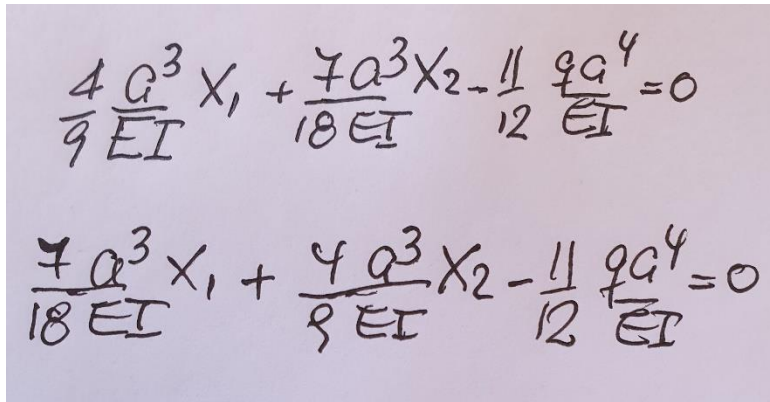 4/9 a³/EI X₁ + 7a³/18EI X₂ - 11/12 qa⁴/EI = 0
7a³/18EI X₁ + 4a³/9EI X₂ - 11/12 qa⁴/EI = 0